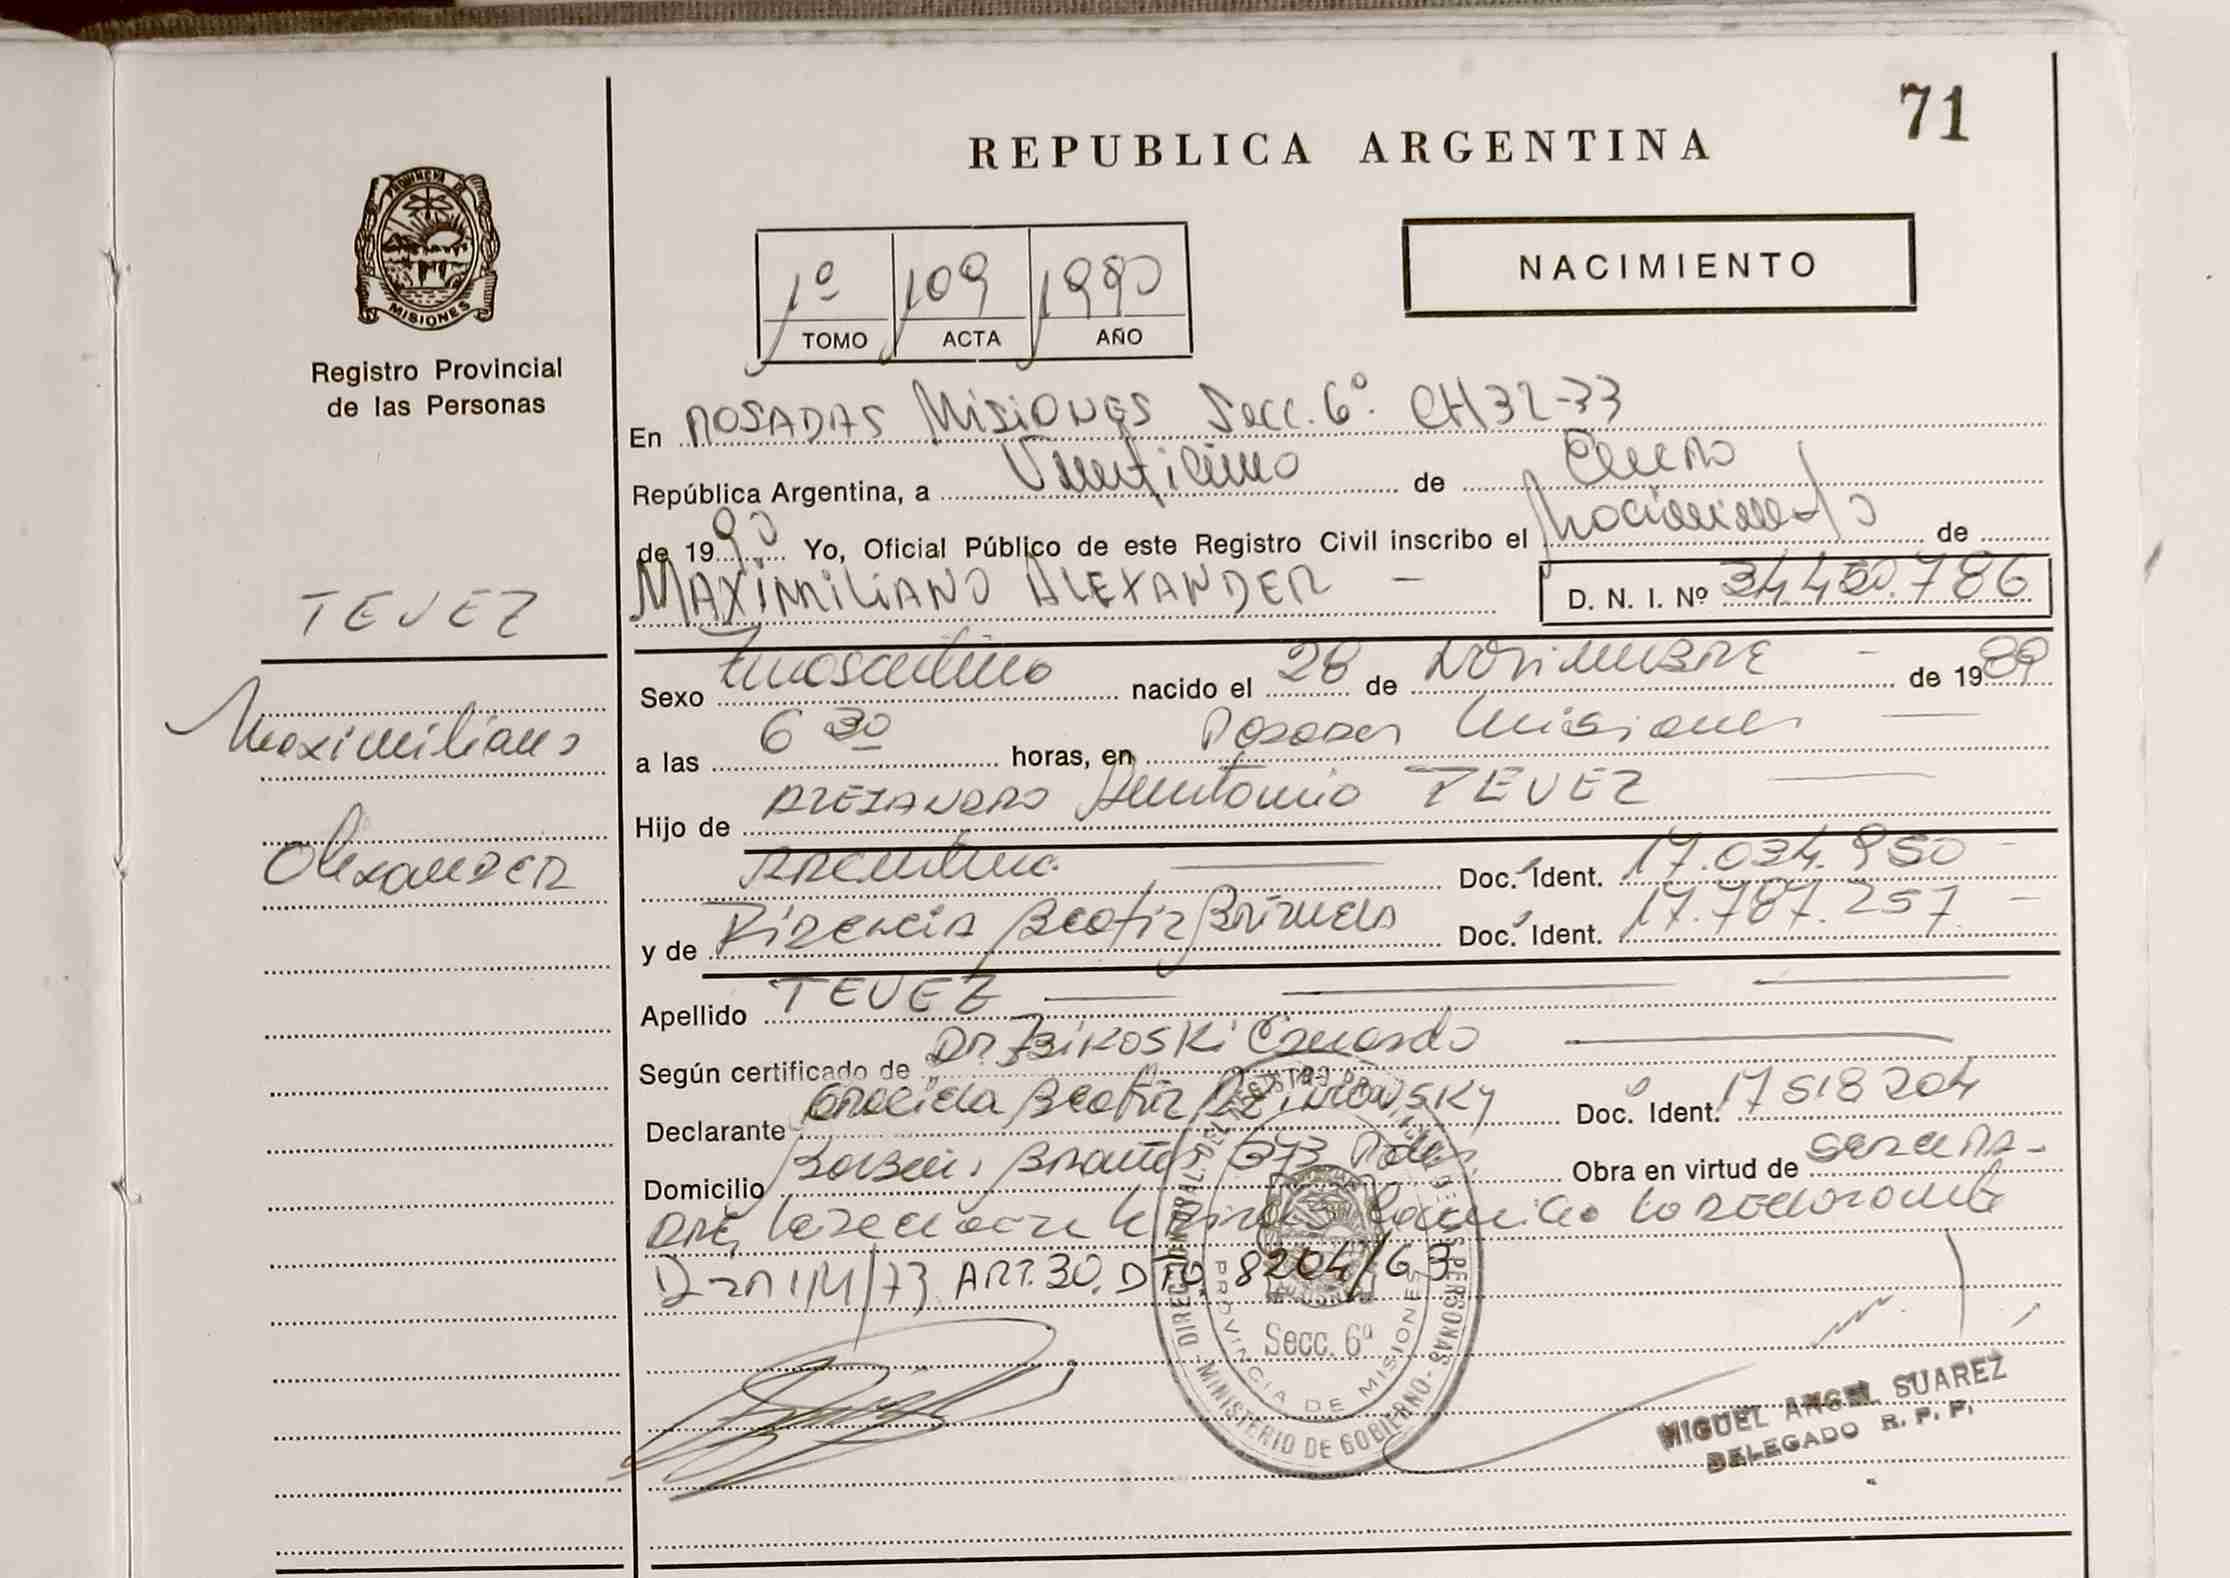 71
REPUBLICA ARGENTINA
NACIMIENTO
PROVINCIA DE
MISIONES
Registro Provincial
de las Personas
1º 109 1990
TOMO ACTA AÑO
En POSADAS MISIONES Secc. 6º. CH 32-33
República Argentina, a Veintiuno de Enero
de 1990 Yo, Oficial Público de este Registro Civil inscribo el Nacimiento de
MAXIMILIANO ALEXANDER - D. N. I. Nº 34.450.786
TEVEZ
Maximiliano
Alexander
Sexo masculino nacido el 28 de NOVIEMBRE - de 1989
a las 6 30 horas, en Posadas Misiones
Hijo de ALEJANDRO Antonio TEVEZ
Argentino Doc. Ident. 17.034.950 -
y de Beatriz Brizuela Doc. Ident. 17.787.257 -
Apellido TEVEZ
Según certificado de DR. Eduardo
Declarante Graciela Beatriz Doc. Ident. 17518204
Domicilio 673 Pdas. Obra en virtud de
ART. 30. DTO. 8204/63
DIRECCION GENERAL DEL REGISTRO PROVINCIAL DE LAS PERSONAS - MINISTERIO DE GOBIERNO -
PROVINCIA DE MISIONES
Secc. 6ª
MIGUEL ANGEL SUAREZ
DELEGADO R. P. P.